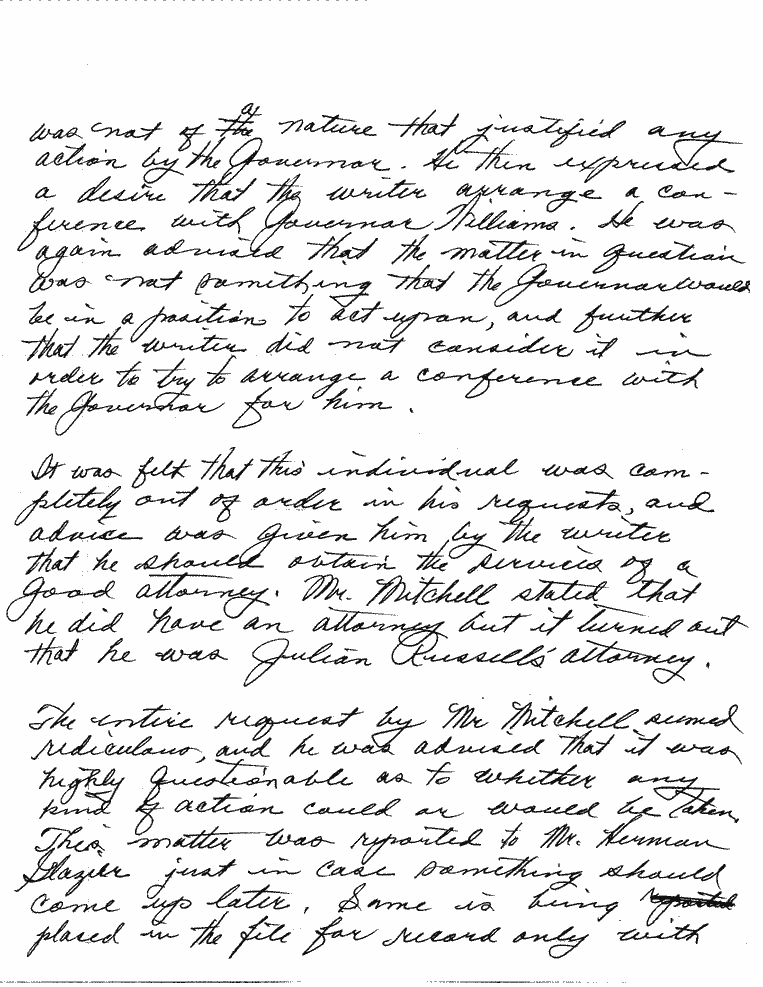 was not of a the nature that justified any
action by the Governor. He then expressed
a desire that the writer arrange a con-
ference with Governor Williams. He was
again advised that the matter in question
was not something that the Governor would
be in a position to act upon, and further
that the writer did not consider it in
order to try to arrange a conference with
the Governor for him.
It was felt that this individual was com-
pletely out of order in his requests, and
advice was given him by the writer
that he should obtain the services of a
good attorney. Mr. Mitchell stated that
he did have an attorney but it turned out
that he was Julian Russell's attorney.
The entire request by Mr Mitchell seemed
ridiculous, and he was advised that it was
highly questionable as to whether any
kind of action could or would be taken.
This matter was reported to Mr. Herman
Glazier just in case something should
come up later. Same is being reported
placed in the file for record only with